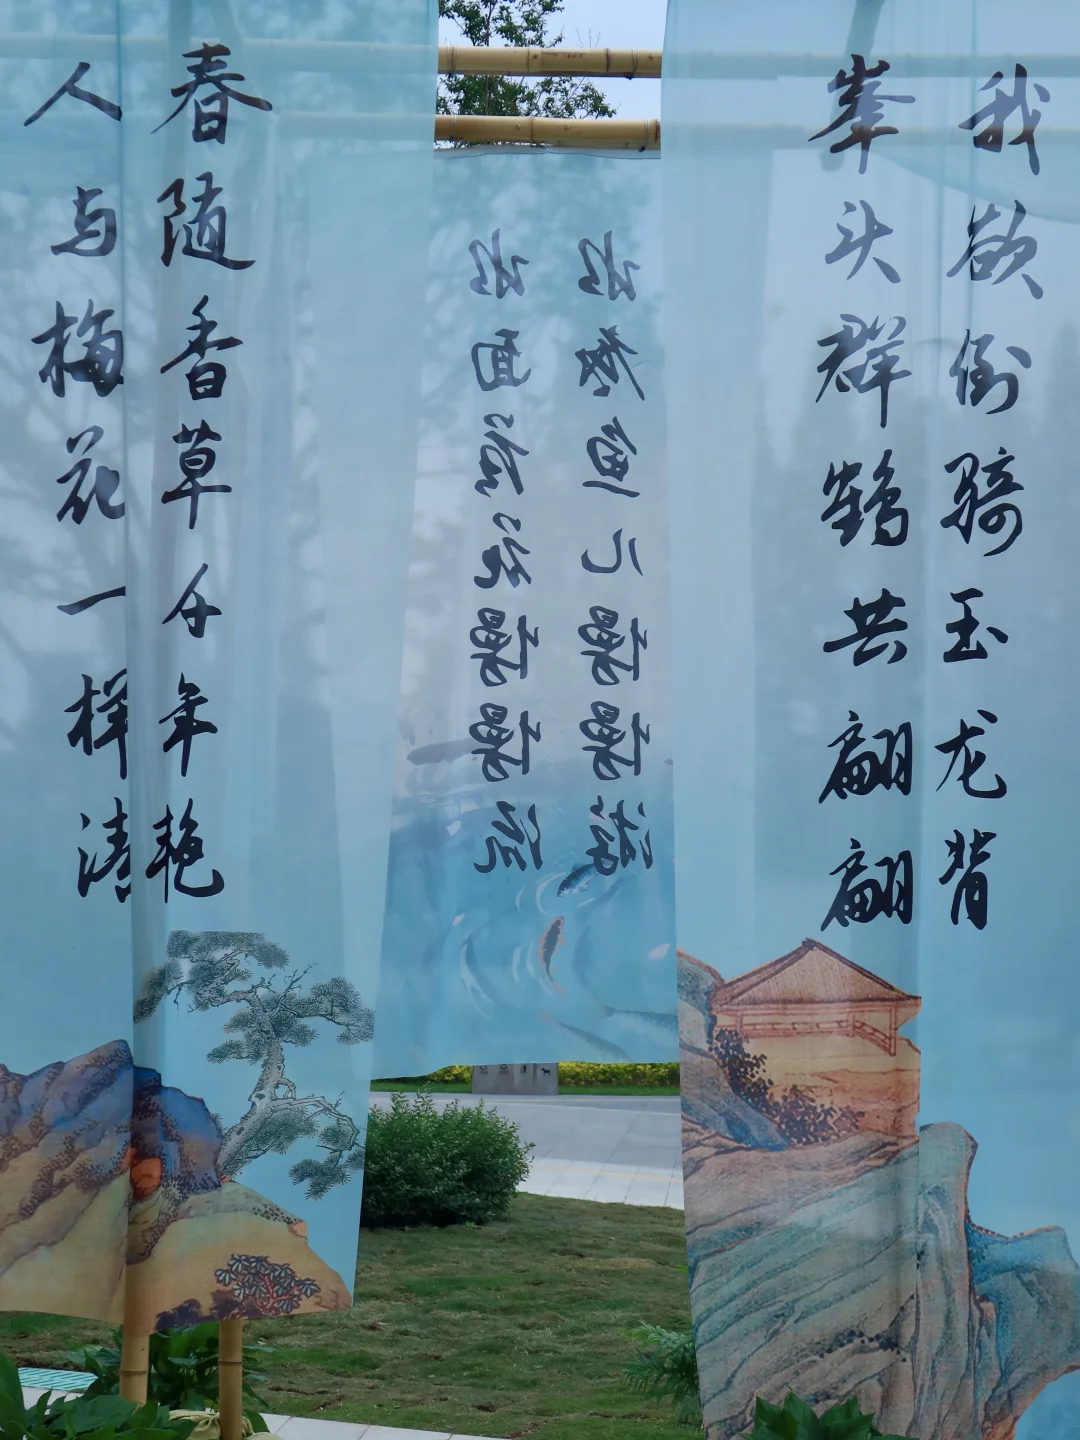 我欲倒骑玉龙背
峯头群鹤共翩翩
水面落花慢慢流
水底鱼儿慢慢游
春随香草千年艳
人与梅花一样清